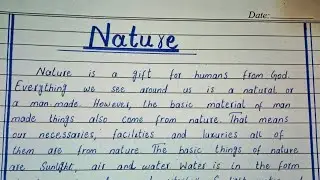 Date:
Nature
Nature is a gift for humans from God.
Everything we see around us is a natural or
a man-made. However, the basic material of man
made things also come from nature. That means
our necessaries, facilities and luxuries all of
them are from nature. The basic things of nature
are Sunlight, air and water. Water is in the form